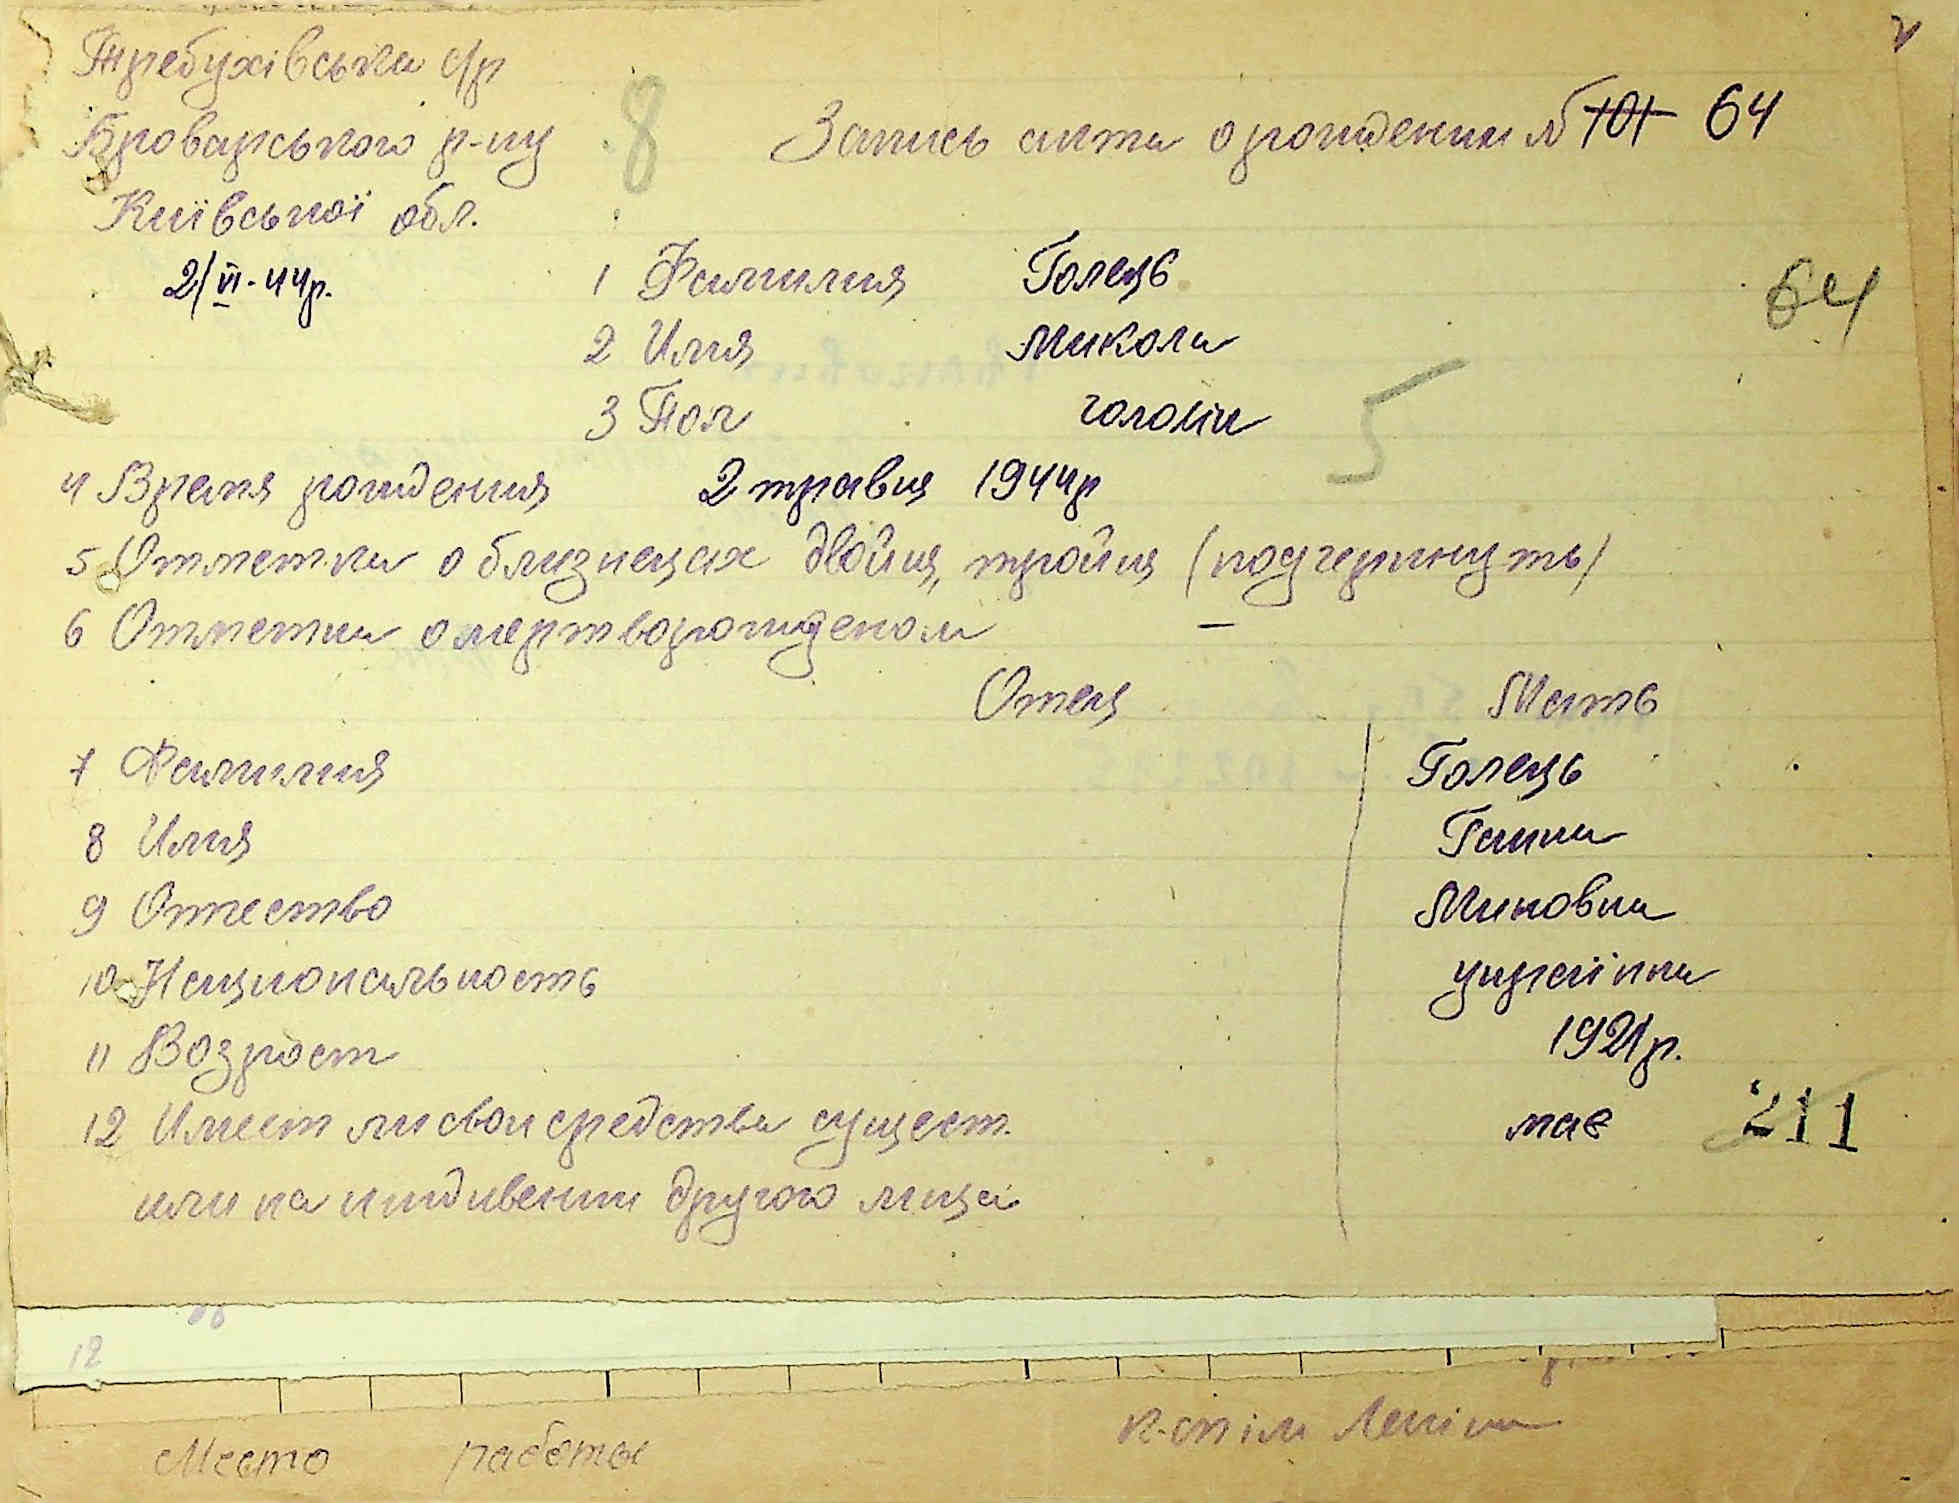 Требухівська с/р
Броварського р-ну
Київської обл.
2/VI-44р.
8
Запись акта о рождении № 101 64
64
1 Фамилия Голець
2 Имя Микола
3 Пол чоловік
5
4 Время рождения 2 травня 1944р
5 Отметка о близнецах двойня, тройня (подчеркнуть)
6 Отметка о мертворожденом –
Отец Мать
7 Фамилия Голець
8 Имя Ганна
9 Отчество Миновна
10 Национальность українка
11 Возраст 1921р.
12 Имеет ли свои средства сущест. має
211
или на иждивении другого лица
12
Место работы к-сп ім Леніна